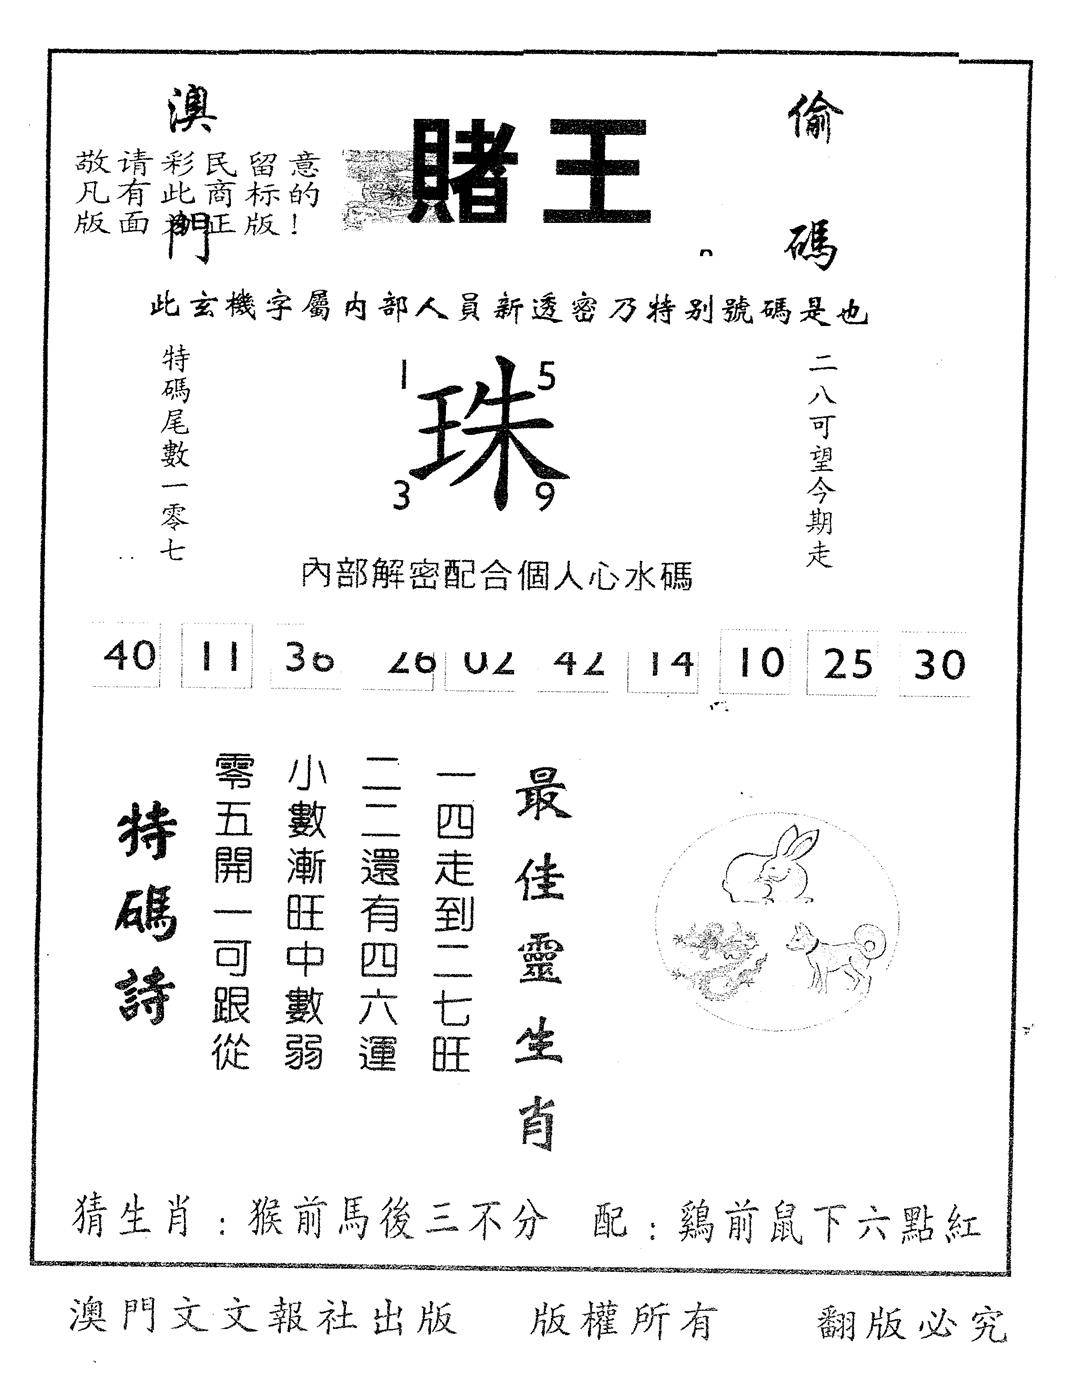 澳門
賭王
偷碼
敬请彩民留意
凡有此商标的
版面 正版！
此玄機字屬内部人員新透密乃特别號碼是也
特碼尾數一零七
1 5
珠
3 9
二八可望今期走
内部解密配合個人心水碼
40 11 36 26 02 42 14 10 25 30
最佳靈生肖
一四走到二七旺
二二還有四六運
小數漸旺中數弱
零五開一可跟從
特碼詩
猜生肖：猴前馬後三不分 配：鷄前鼠下六點紅
澳門文文報社出版 版權所有 翻版必究